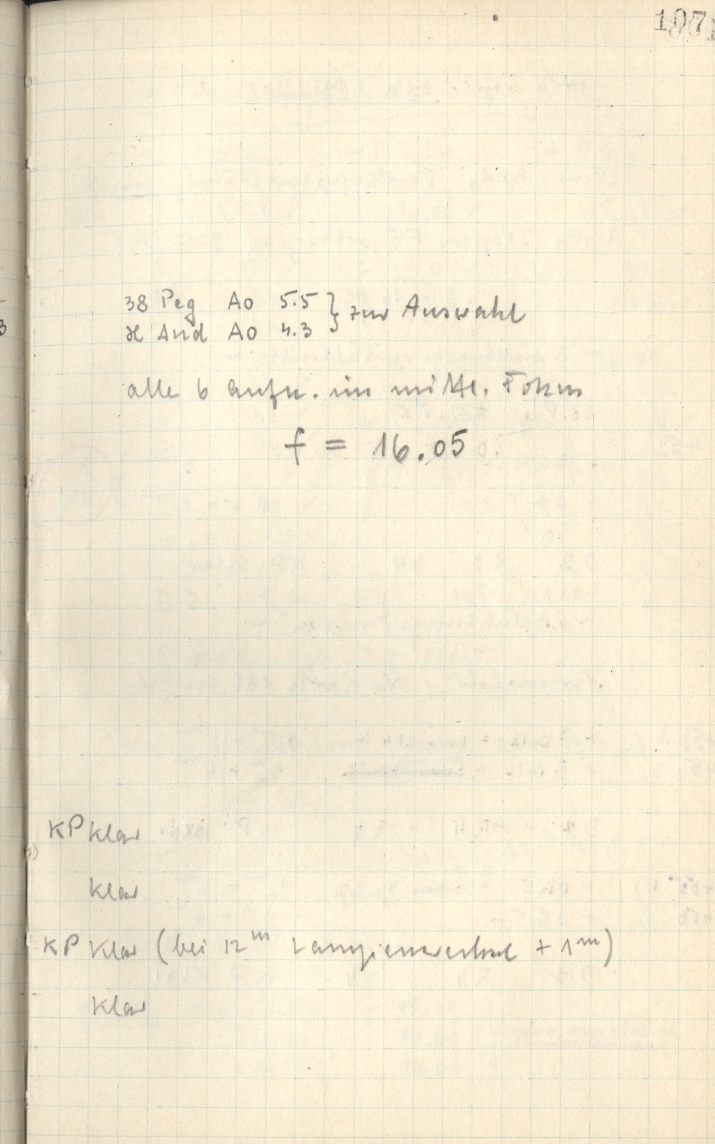 1071
38 Peg A0 5.5 } zur Auswahl
ϰ And A0 4.3
alle 6 Aufn. im mittl. Fokus
f = 16.05
KP klar
klar
KP klar (bei 12ᵐ Lampenwechsel + 1ᵐ)
klar